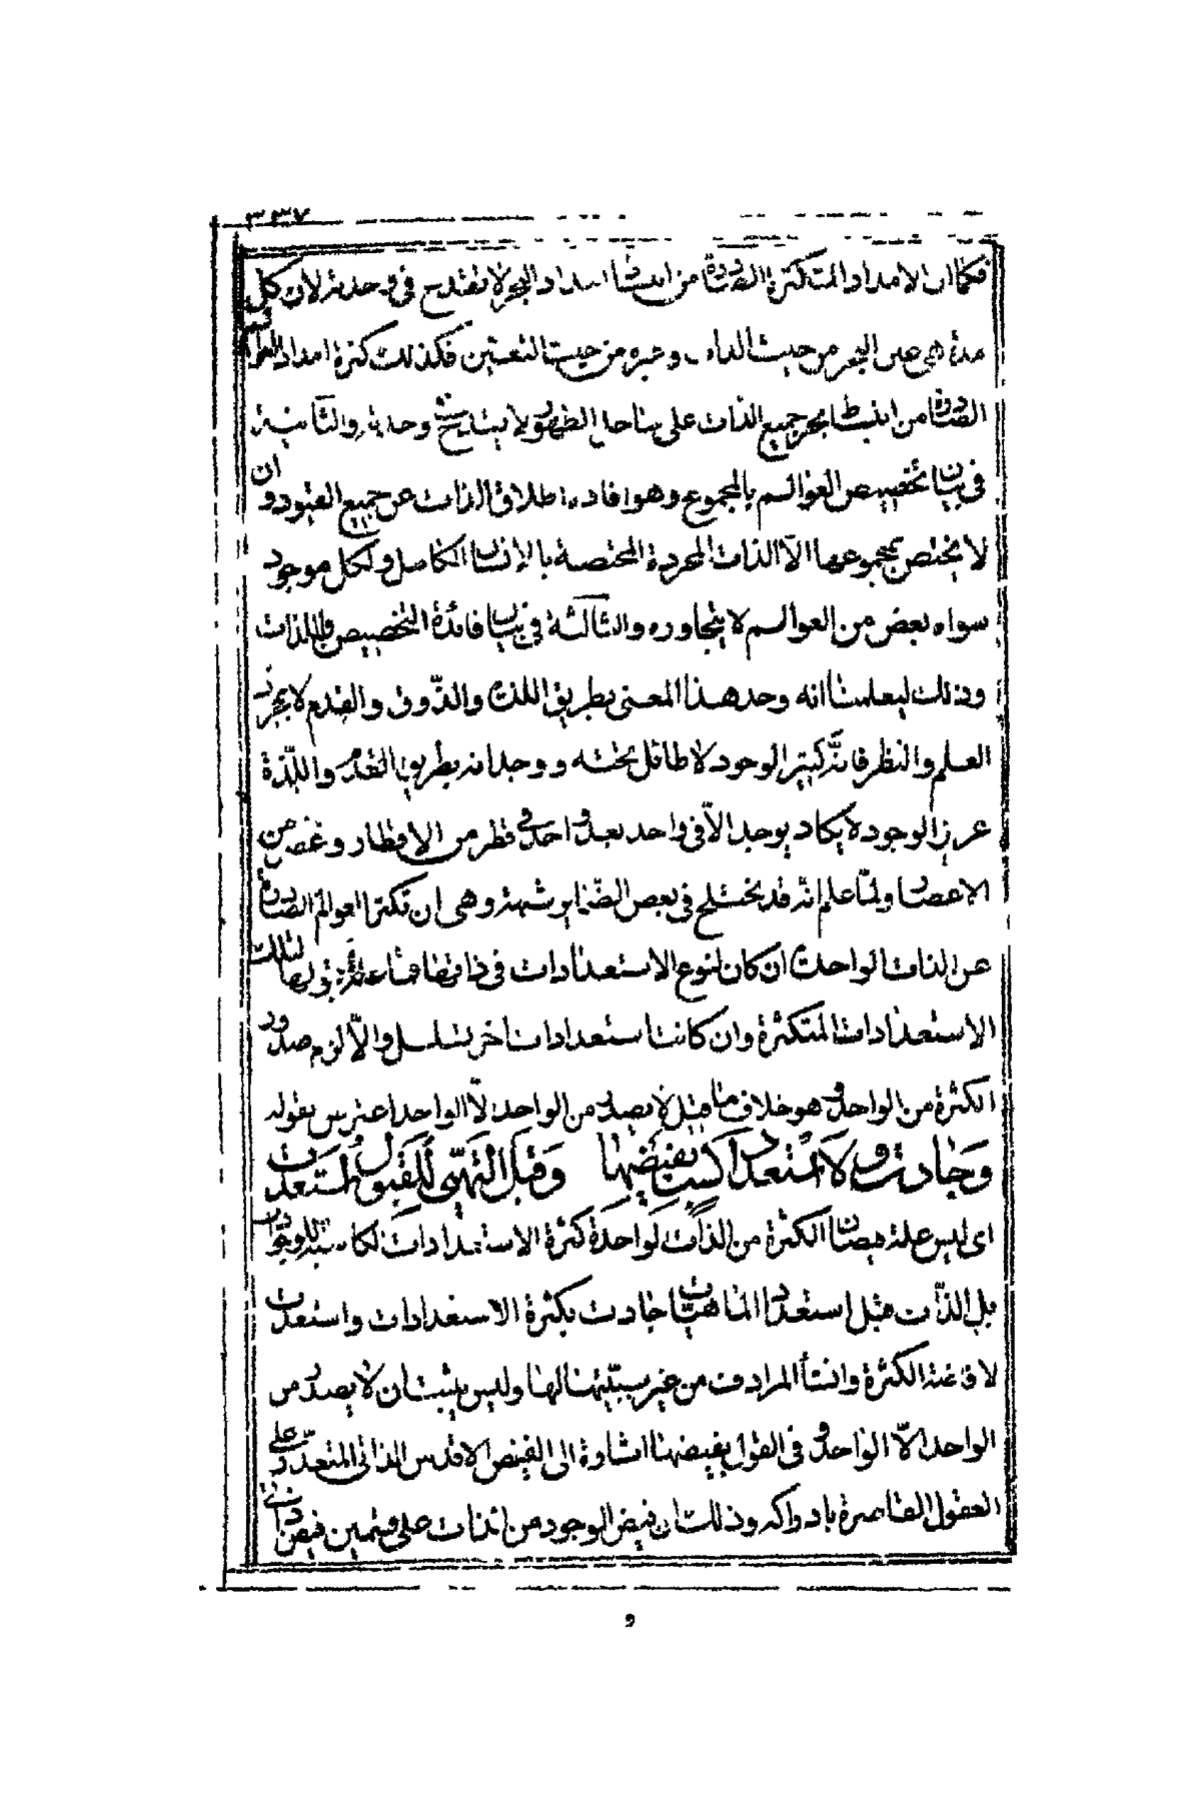 ٣٣٧
فكما ان الامداد المتكثرة الصادرة من امداد البحر لا تقدح فى وحدته لان كل
مدة هى عين البحر من حيث الذات وغيره من حيث التعين فكذلك كثرة امداد
الصادرة من انبساط بحر جميع الذات على ساحل الظهور لا يقدح وحدته والثانية
فى بيان تخصيص العوالم بالمجموع وهو افاده اطلاق الذات عن جميع القيود وان
لا يختص بمجموعها الا الذات المجردة المختصة بالانسان الكامل ولكل موجود
سواه بعض من العوالم لا يتجاوزه والثالثة فى بيان فائدة التخصيص بالذات
وذلك ليعلمنا انه وجد هذا المعنى بطريق اللذة والذوق والقدم لا بمجرد
العلم والنظر فانه كثير الوجود لا طائل تحته ووجدانه بطريق القدم واللذة
عزيز الوجود لا يكاد يوجد الا فى واحد بعد واحد فى قطر من الاقطار وعصر من
الاعصار ولما علم انه قد يختلج فى بعض الضماير شبهة وهى ان تكثر العوالم الصادرة
عن الذات الواحدة ان كان لنوع الاستعدادات فى ذاتها فما علة قبولها لتلك
الاستعدادات المتكثرة وان كانت استعدادات اخر تسلسل والا لزم صدور
الكثرة من الواحد وهو خلاف ما قيل لا يصدر من الواحد الا الواحد اعترس بقوله
وجادت ولا استعداد كسب بفيضها وقبل التهيى للقبول استعدت
اى ليس علة فيضان الكثرة من الذات الواحدة كثرة الاستعدادات
بل الذات قبل استعداد الماهيات جادت بكثرة الاستعدادات واستعدت
لافاضة الكثرة وانشأ المرادف من غير سببيتها لها وليس يثبت ان لا يصدر من
الواحد الا الواحد وفى القول بفيضها اشارة الى الفيض الاقدس الذاتى المتعذر على
العقول القاصرة ادراكه وذلك ان فيض الوجود من الذات على قسمين فيض ذاتى
و